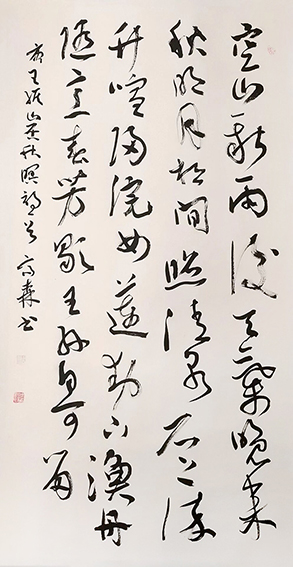 空山新雨後天氣晚來
秋明月松間照清泉石上流
竹喧歸浣女蓮動下漁舟
隨意春芳歇王孫自可留
王維山居秋暝詩 高森書